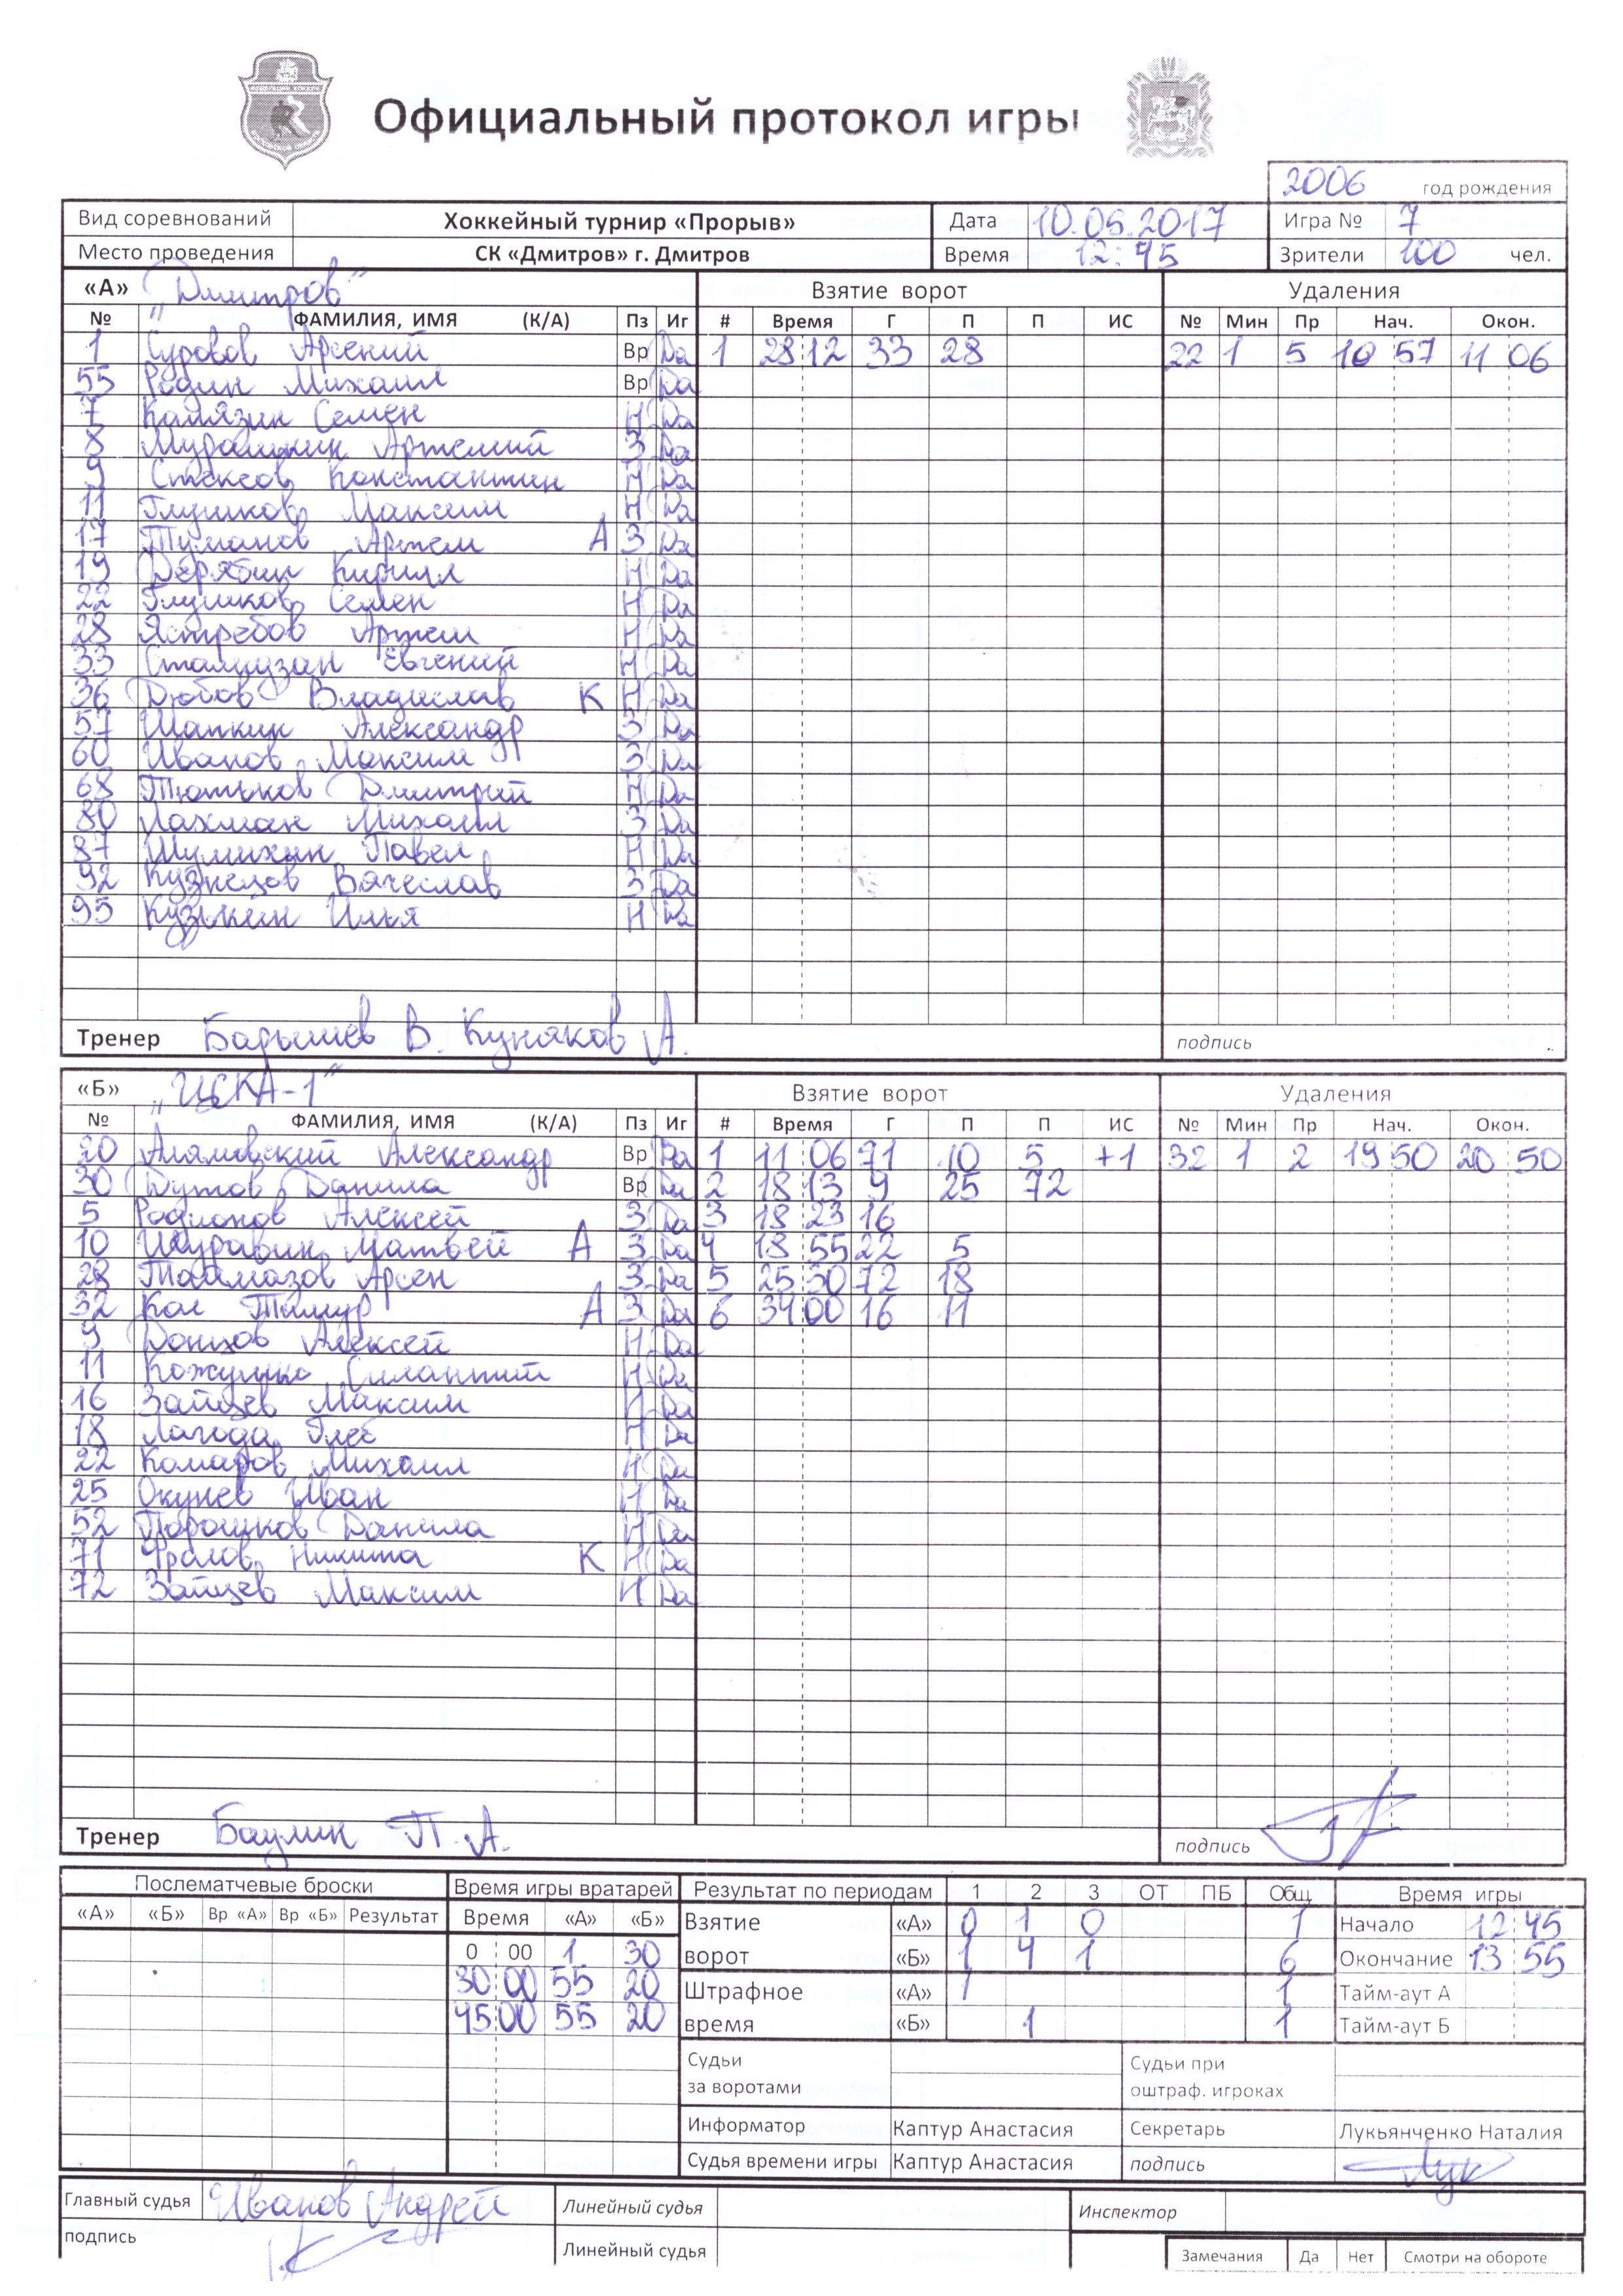 Официальный протокол игры
2006 год рождения
Вид соревнований Хоккейный турнир «Прорыв» Дата 10.06.2017 Игра № 7
Место проведения СК «Дмитров» г. Дмитров Время 12:45 Зрители 100 чел.
«А» "Дмитров" Взятие ворот Удаления
№ ФАМИЛИЯ, ИМЯ (К/А) Пз Иг # Время Г П П ИС № Мин Пр Нач. Окон.
1 Суровов Арсений Вр Да 1 28 12 33 28 22 1 5 10 57 11 06
55 Родин Михаил Вр Да
7 Калязин Семен Н Да
8 Мурашкин Артемий З Да
9 Стексов Константин Н Да
11 Глушков Максим Н Да
17 Туманов Артем А З Да
19 Дерябин Кирилл Н Да
22 Глушков Семен Н Да
28 Ястребов Артем Н Да
33 Евгений Н Да
36 Дюбов Владислав К Н Да
57 Шапкин Александр З Да
60 Иванов Максим З Да
68 Тютьков Дмитрий Н Да
80 Лахман Михаил З Да
87 Шумихин Павел Н Да
92 Кузнецов Вячеслав З Да
95 Кузькин Илья Н Да
Тренер Барышев В. Куняков А. подпись
«Б» "ЦСКА-1" Взятие ворот Удаления
№ ФАМИЛИЯ, ИМЯ (К/А) Пз Иг # Время Г П П ИС № Мин Пр Нач. Окон.
20 Алямовский Александр Вр Да 1 11 06 71 10 5 +1 32 1 2 19 50 20 50
30 Дутов Данила Вр Да 2 18 13 9 25 72
5 Родионов Алексей З Да 3 18 23 16
10 Шуравин Матвей А З Да 4 18 55 22 5
28 Таймазов Арсен З Да 5 25 30 72 18
32 Кол Тимур А З Да 6 34 00 16 11
9 Донцов Алексей Н Да
11 Кожушко Силантий Н Да
16 Зайцев Максим Н Да
18 Лагода Глеб Н Да
22 Комаров Михаил Н Да
25 Окунев Иван Н Да
52 Порошков Данила Н Да
71 Фролов Никита К Н Да
72 Зайцев Максим Н Да
Тренер Баулин П. А. подпись
Послематчевые броски Время игры вратарей Результат по периодам 1 2 3 ОТ ПБ Общ. Время игры
«А» «Б» Вр «А» Вр «Б» Результат Время «А» «Б» Взятие «А» 0 1 0 1 Начало 12 45
0 00 1 30 ворот «Б» 1 4 1 6 Окончание 13 55
30 00 55 20 Штрафное «А» 1 1 Тайм-аут А
45 00 55 20 время «Б» 1 1 Тайм-аут Б
Судьи за воротами Судьи при оштраф. игроках
Информатор Каптур Анастасия Секретарь Лукьянченко Наталия
Судья времени игры Каптур Анастасия подпись Лук
Главный судья Иванов Андрей Линейный судья Инспектор
подпись Линейный судья Замечания Да Нет Смотри на обороте